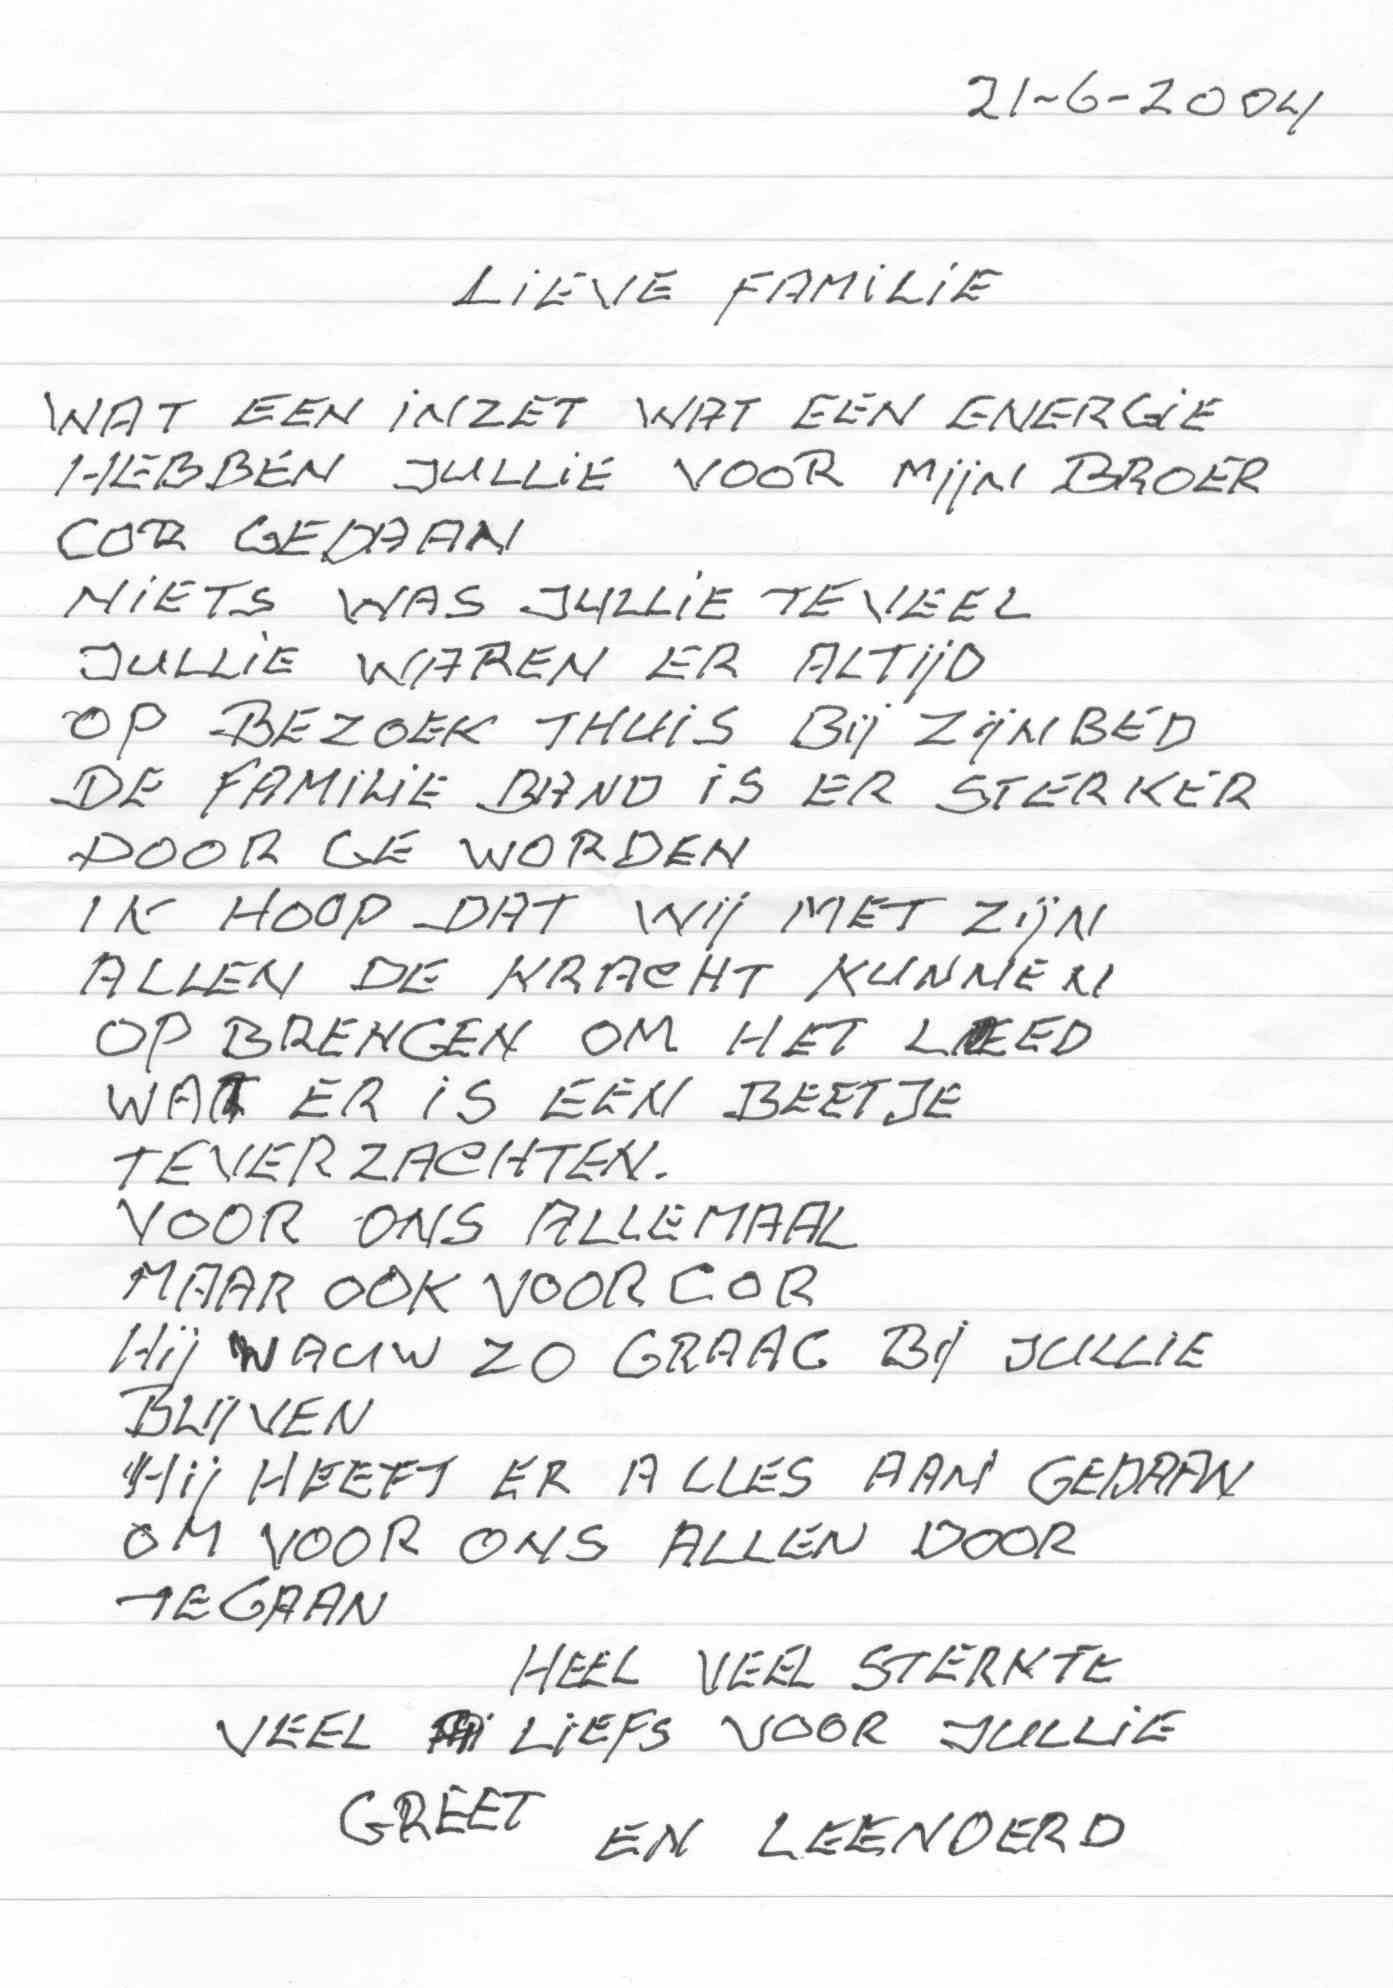 21-6-2004
LiEVE FAMiLiE
WAT EEN iNZET WAT EEN ENERGiE
HEBBEN JULLiE VOOR MijN BROER
COR GEDAAN
NiETS WAS JULLiE TEVEEL
JULLiE WAREN ER ALTijD
OP BEZOEK THUiS Bij ZijN BED
DE FAMiLiE BAND iS ER STERKER
DOOR GE WORDEN
IK HOOP DAT Wij MET ZijN
ALLEN DE KRACHT KUNNEN
OP BRENGEN OM HET LEED
WAT ER iS EEN BEETJE
TEVERZACHTEN.
VOOR ONS ALLEMAAL
MAAR OOK VOOR COR
Hij WAUW ZO GRAAG Bij JULLIE
BLijVEN
Hij HEEFT ER ALLES AAN GEDAAN
OM VOOR ONS ALLEN DOOR
TEGAAN
HEEL VEEL STERKTE
VEEL LiEFS VOOR JULLiE
GREET EN LEENDERD